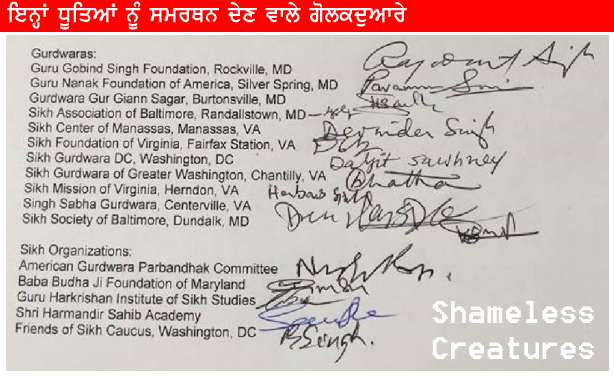 ਇਨ੍ਹਾਂ ਧੂਤਿਆਂ ਨੂੰ ਸਮਰਥਨ ਦੇਣ ਵਾਲੇ ਗੋਲਕਦੁਆਰੇ
Gurdwaras:
Guru Gobind Singh Foundation, Rockville, MD
Guru Nanak Foundation of America, Silver Spring, MD
Gurdwara Gur Giann Sagar, Burtonsville, MD
Sikh Association of Baltimore, Randallstown, MD
Sikh Center of Manassas, Manassas, VA Devinder Singh
Sikh Foundation of Virginia, Fairfax Station, VA
Sikh Gurdwara DC, Washington, DC Daljit Sawhney
Sikh Gurdwara of Greater Washington, Chantilly, VA Bhatha
Sikh Mission of Virginia, Herndon, VA
Singh Sabha Gurdwara, Centerville, VA
Sikh Society of Baltimore, Dundalk, MD
Sikh Organizations:
American Gurdwara Parbandhak Committee
Baba Budha Ji Foundation of Maryland
Guru Harkrishan Institute of Sikh Studies
Shri Harmandir Sahib Academy
Friends of Sikh Caucus, Washington, DC Singh.
Shameless
Creatures